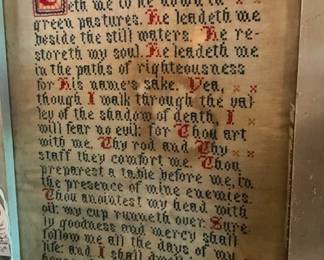 eth me to lie down in
green pastures. He leadeth me
beside the still waters. He re-
storeth my soul. He leadeth me
in the paths of righteousness
for His name's sake. Yea,
though I walk through the val
ley of the shadow of death, I
will fear no evil; for Thou art
with me, Thy rod and Thy
staff they comfort me. Thou
preparest a table before me, in
the presence of mine enemies.
Thou anointest my head with
oil; my cup runneth over. Sure
ly goodness and mercy shall
follow me all the days of my
life: and I shall dwell